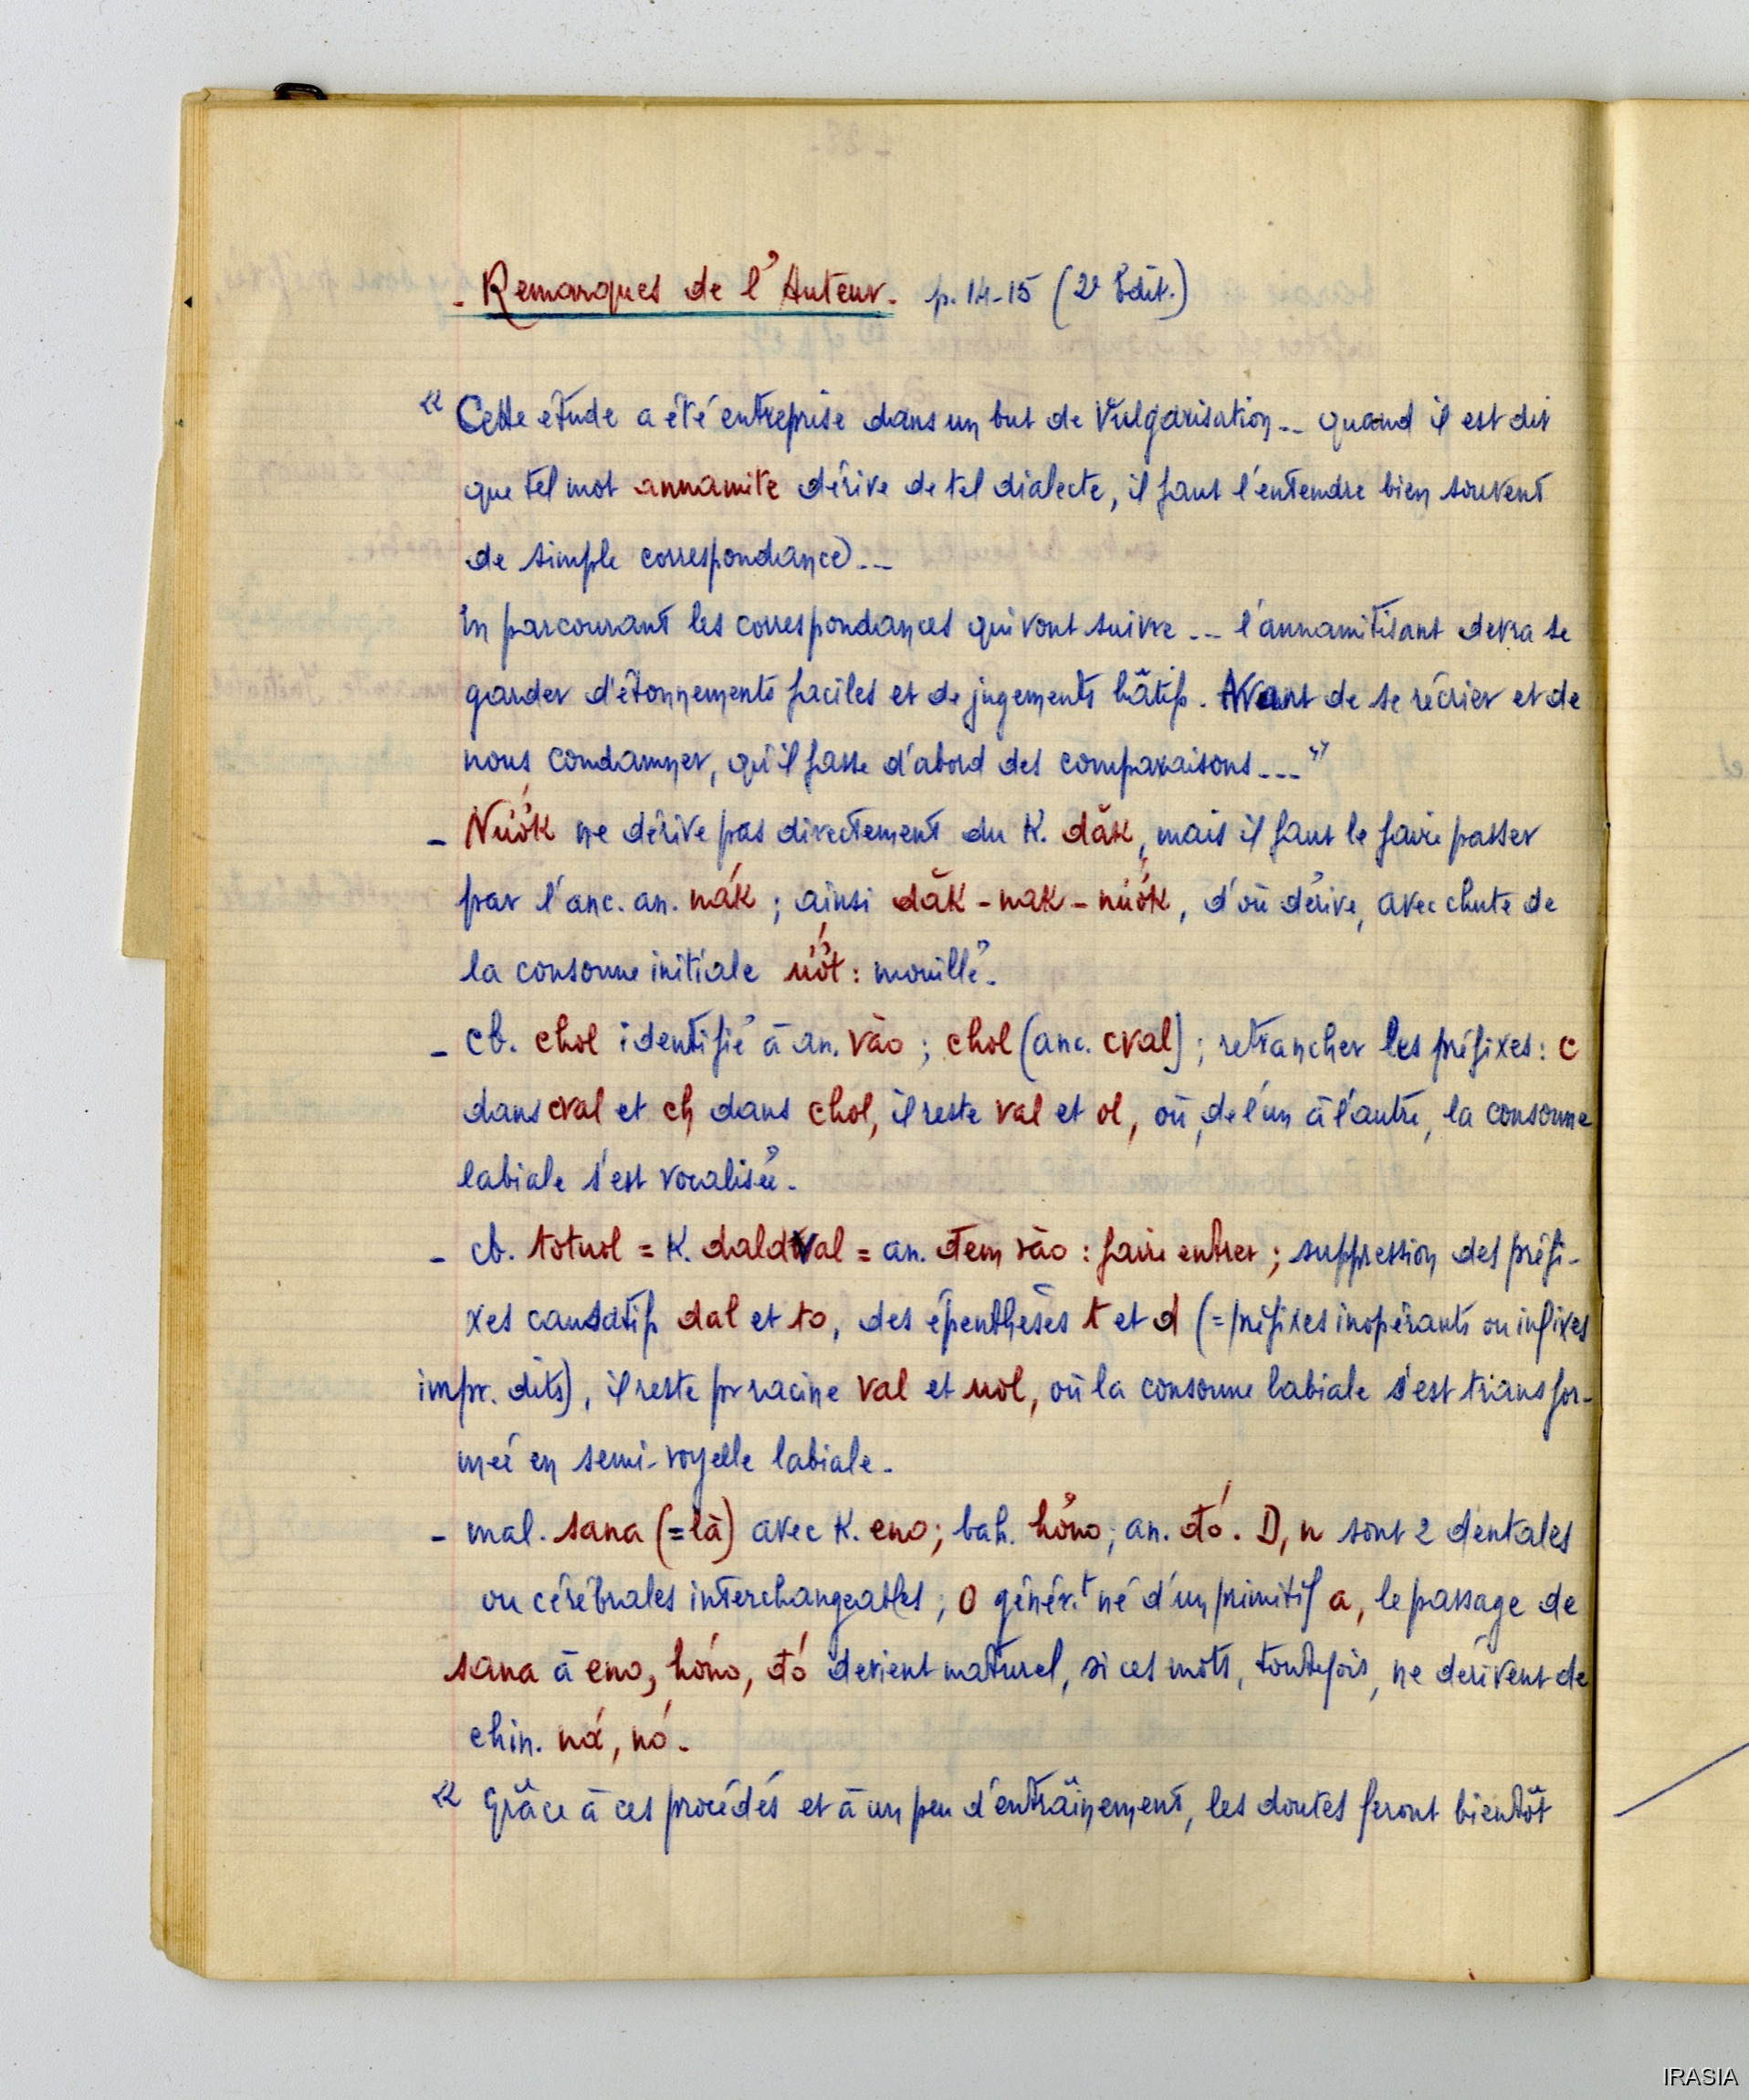 - Remarques de l'Auteur. p. 14-15 (2e Édit.)
« Cette étude a été entreprise dans un but de vulgarisation... quand il est dit
que tel mot annamite dérive de tel dialecte, il faut l'entendre bien souvent
de simple correspondance)...
En parcourant les correspondances qui vont suivre... l'annamitisant devra se
garder d'étonnements faciles et de jugements hâtifs. Avant de se récrier et de
nous condamner, qu'il fasse d'abord des comparaisons... »
- Nước ne dérive pas directement du K. dăk, mais il faut le faire passer
par l'anc. an. nák ; ainsi dăk - nak - nướk, d'où dérive, avec chute de
la consonne initiale ướt : mouillé.
- cb. chol identifié à an. vào ; chol (anc. cval) ; retrancher les préfixes : c
dans cval et ch dans chol, il reste val et ol, où, de l'un à l'autre, la consonne
labiale s'est vocalisée.
- cb. totuol = K. daldval = an. đem vào : faire entrer ; suppression des préfi-
xes causatifs dal et to, des épenthèses t et d (= préfixes inopérants ou infixes
impr. dits), il reste pr racine val et uol, où la consonne labiale s'est transfor-
mée en semi-voyelle labiale.
- mal. sana (= là) avec K. eno ; bah. hôno ; an. đó. D, n sont 2 dentales
ou cérébrales interchangeables ; O génért né d'un primitif a, le passage de
sana à eno, hóno, đó devient naturel, si ces mots, toutefois, ne dérivent de
chin. ná, nó.
« Grâce à ces procédés et à un peu d'entraînement, les doutes feront bientôt
IRASIA